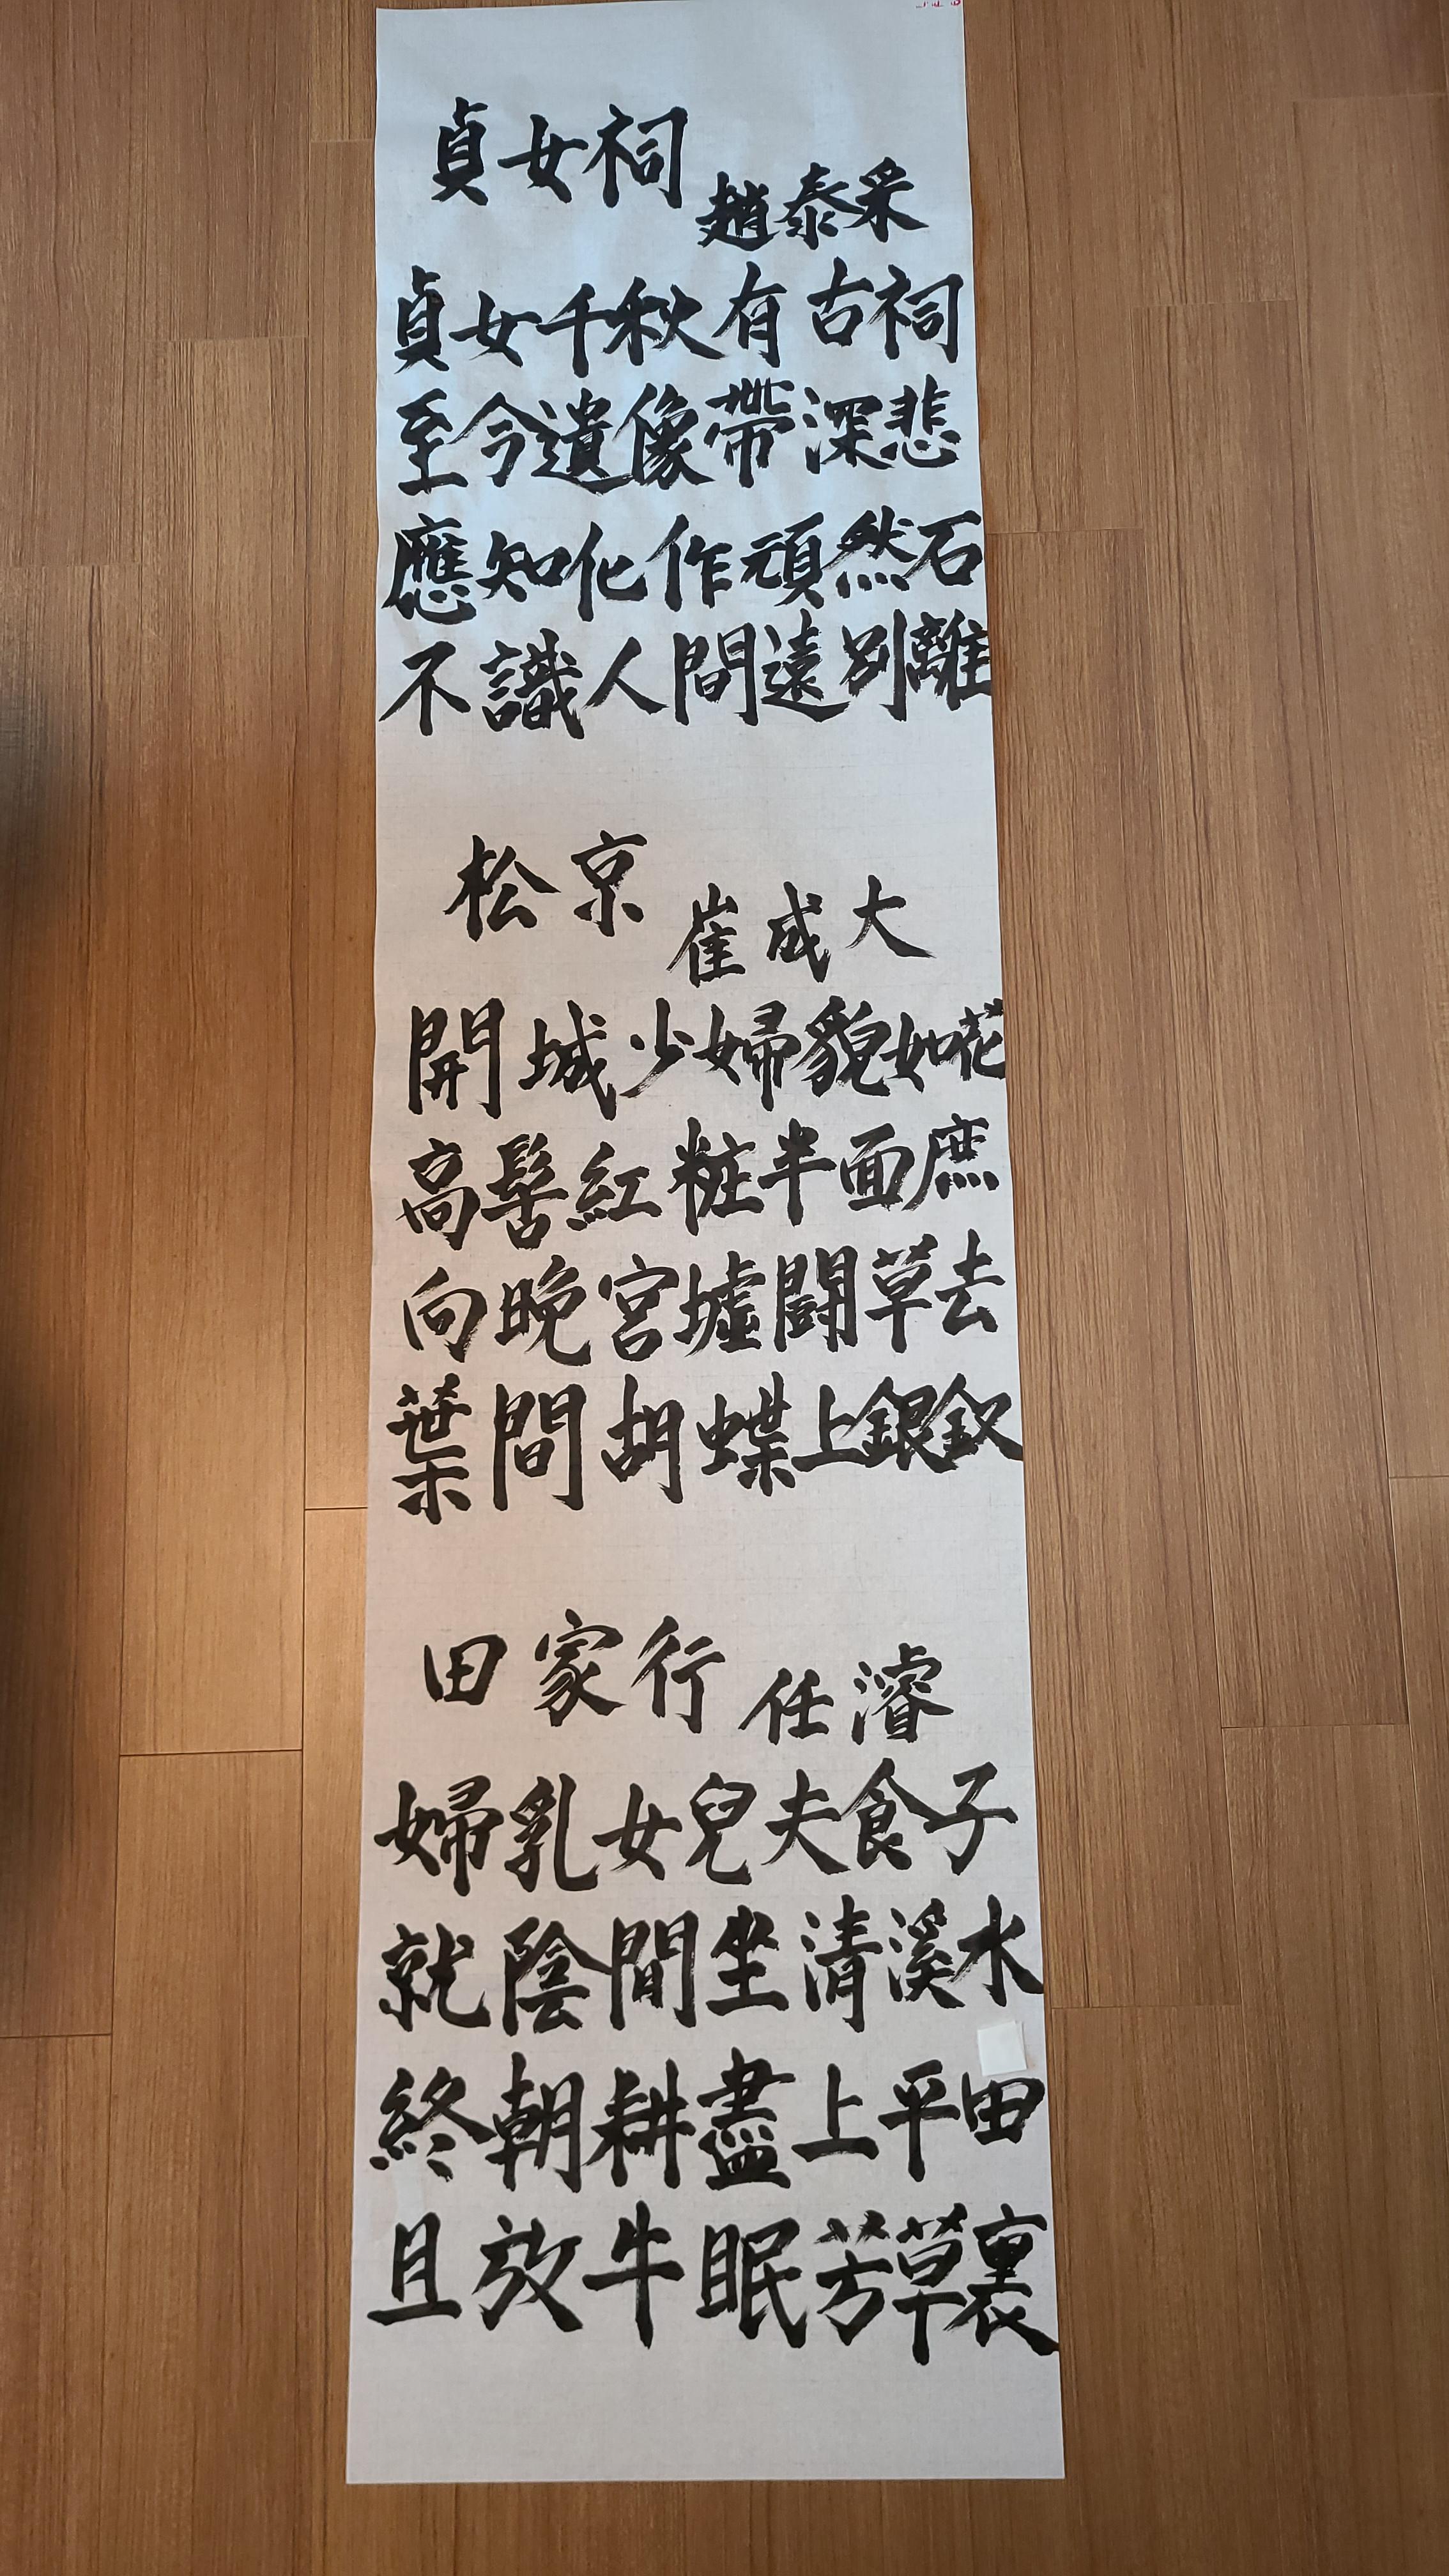 貞女祠
趙泰采
貞女千秋有古祠
至今遺像帶深悲
應知化作頑然石
不識人間遠別離
松京
崔成大
開城少婦貌如花
高髻紅粧半面庶
向晚宮墟鬪草去
葉間胡蝶上銀釵
田家行
任濬
婦乳女兒夫食子
就陰間坐清溪水
終朝耕盡上平田
且放牛眠芳草裏